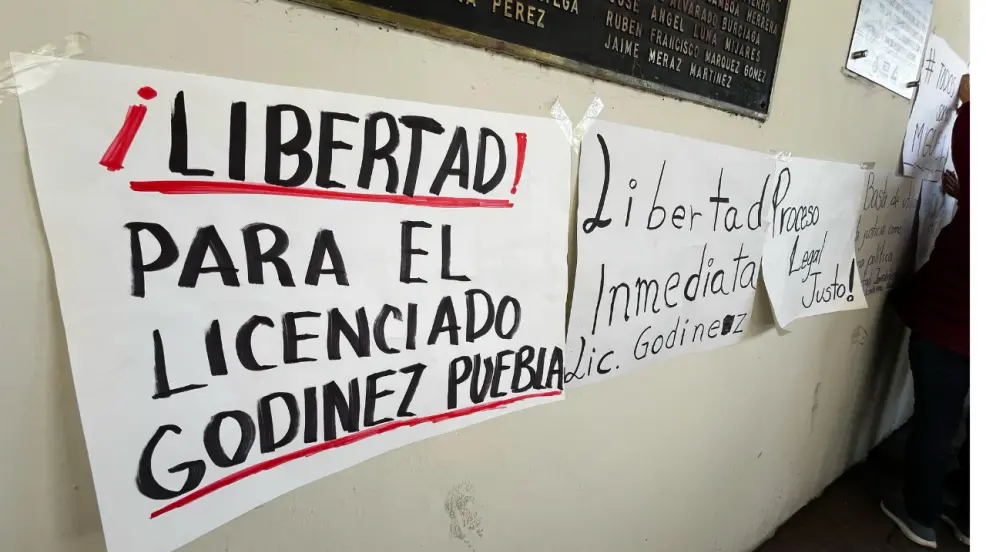 PEREZ
JOSÉ ANGEL LUNA MIJARES
RUBEN FRANCISCO MARQUEZ GOMEZ
JAIME MERAZ MARTINEZ
¡LIBERTAD!
PARA EL
LICENCIADO
GODINEZ PUEBLA
Libertad
Inmediata
Lic. Godinez
Proceso
Legal
Justo!
Basta de
justicia como
política
# TODOS